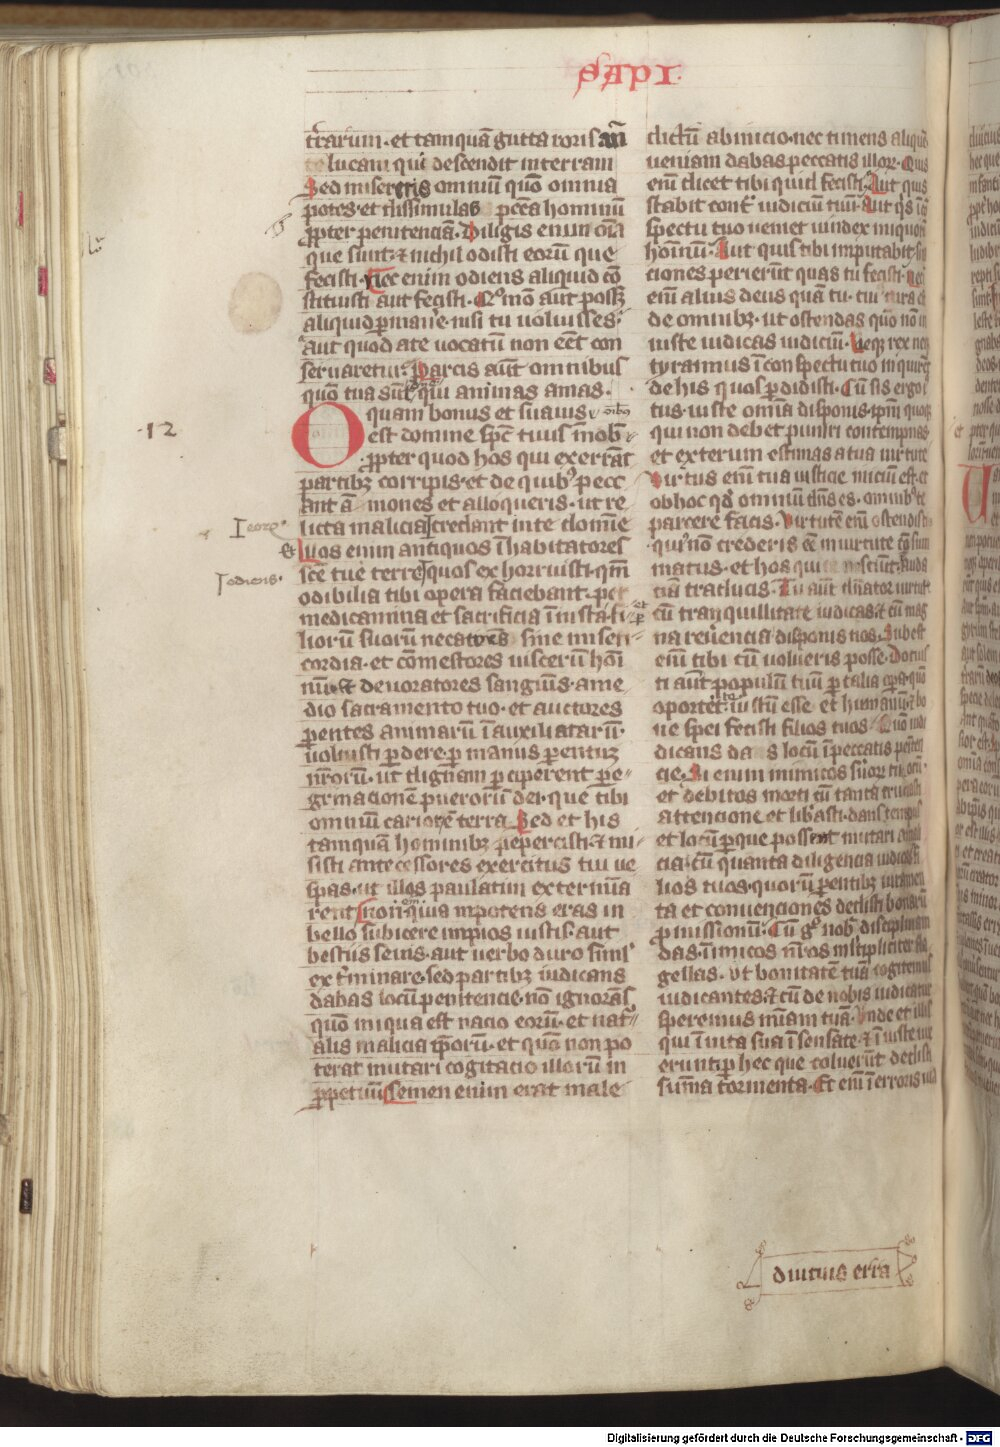 SAPI
t̄rarum · et tamquā gutta roris an̄
te lucani qui descendit in terram
Sed misereris omniū quō omnia
potes · et dissimulas pcc̄a hominū
ꝓpter penitenciā · Diligis enim oīa
que sunt · ⁊ nichil odisti eorū que
fecisti · Nec enim odiens aliquid cō
stituisti aut fecisti · Quomō aut posset
aliquid ꝑmane᷑e · nisi tu uoluisses ·
aut quod a te uocatū non eēt con
seruaretur · Parcis aūt omnibus
quōn tua sūt qui animas amas ·
O quam bonus et suauis
est domine spc̄ tuus in oīb᷒
·12·
ꝓpter quod hos qui exerrāt
partibꝫ corripis · et de quibꝰ pecc
ant āmones et alloqueris · ut re
licta malicia credant in te domīe
Illos enim antiquos īhabitatores
scē tue terre quos exhorruisti · qm̄
odibilia tibi opera faciebant · per
medicamina et sacrificia īniusta · fi
liorū suorū necatores sine miseri
cordia · et comestores uiscerū homī
nū · ⁊ deuoratores sanguīs · a me
dio sacramento tuo · et auctores
ꝑentes animarū īauxiliatarū ·
uoluisti ꝑdere · ꝑ manus ꝑentuꝫ
nr̄orū · ut dignam ꝑciperent pe
grinacionē puerorū dei · que tibi
omniū carior ē terra Sed et his
tamquam hominibꝫ pepercisti · ⁊ mi
sisti antecessores exercitus tui ue
spas · ut illos paulatim extermīa
rent non quia inpotens eras in
bello subicere impios iustis · aut
bestiis seuis · aut uerbo duro simł
ext̄minare · sed partibꝫ iudicans
dabas locū penitencie · nō ignorās
quōn iniqua est nacio eorū · et natur
alis malicia ip̄orū · et quōn non po
terat mutari cogitacio illorū in
ꝑpetuū Semen enim erat male
dictū ab inicio · nec timens aliquē
ueniam dabas peccatis illoꝝ · Quis
enī dicet tibi quid fecisti · Aut quis
stabit cont᷑ iudiciū tuū · Aut qs̄ ī cō
spectu tuo ueniet uindex iniquorū
homīnū · Aut quis tibi imputabit si na
ciones perierūt quas tu fecisti · Nec
enī alius deus quā tu · cui cura est
de omnibꝫ · ut ostendas quōn nō in
iuste iudicas iudiciū · Neqꝫ rex neqꝫ
tyrannus ī conspectu tuo inquirēt
de his quos ꝑdidisti · Cū sis ergo i
tus · iuste omīa disponis · ip̄m quoqꝫ
qui non debet puniri contempnas
et exterum estimas a tua uirtute
Virtus enī tua iusticie iniciū est · et
ob hoc qđ omniū dn̄s es · omnibꝰ te
parcere facis · Virtutē enī ostendis tu
qui nō crederis eē in uirtute cōsum
matus · et hos qui te nesciūt · auda
ciā traducis · Tu aūt dn̄ator uirtutis
cū tranquillitate iudicas · ⁊ cū mag
na reuerencia disponis nos · Subest
enī tibi cū uolueris posse · Docuis
ti aūt populū tuū ꝑ talia opera · quō
oportet iustū esse et humanū · ⁊ bo
ne spei fecisti filios tuos · Quōn iudi
dicans das locū ī peccatis peniten
cie · Si enim inimicos suorꝫ tuorū
et debitos morti cū tanta cruciasti
attencione et libasti · dans tempus
et locū ꝑ que possent mutari a mali
cia · cū quanta diligencia iudicasti fi
lios tuos · quorū ꝑentibꝫ iuramen
ta et conuenciones dedisti bonarū
ꝓmissionū · Cū gͦ nobis disciplinam
das · īnimicos nr̄os multipliciter fla
gellas · Ut bonitatē tuā cogitemus
iudicantes · ⁊ cū de nobis iudicatur
speremus mīam tuā · Vnde et illis
qui ī uita sua īsensate · ⁊ īiuste uix
erunt ꝑ hec que coluerūt dedisti
summa tormenta · Et enī ī erroris uia
diutius erra
Digitalisierung gefördert durch die Deutsche Forschungsgemeinschaft - DFG